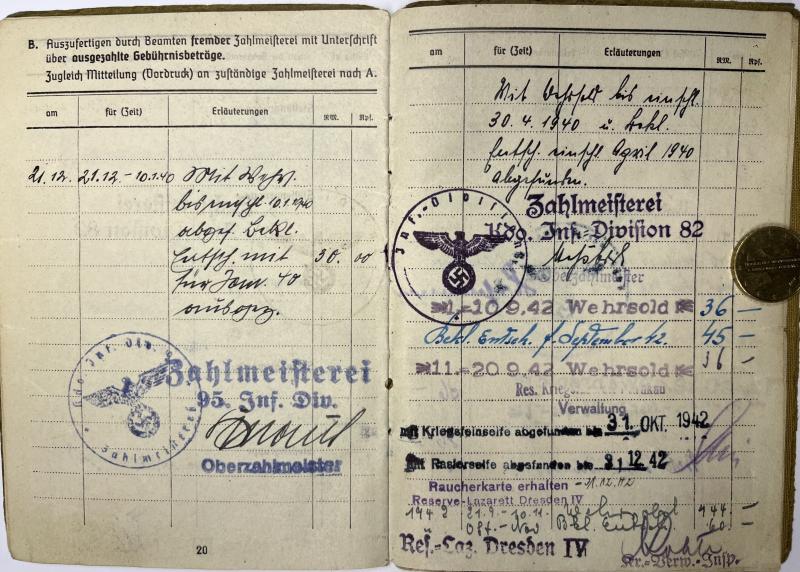 B. Auszufertigen durch Beamten fremder Zahlmeisterei mit Unterschrift
über ausgezahlte Gebührnisbeträge.
Zugleich Mitteilung (Vordruck) an zuständige Zahlmeisterei nach A.
am für (Zeit) Erläuterungen RM. Rpf.
21.12. 21.12.–10.1.40 Mit Wehrs.
bis einschl 10.1.40
abgef. Bekl.
Entsch. mit 30. 00
für Jan. 40
Inf. Div.
Zahlmeisterei
Zahlmeisterei
95. Inf. Div.
Oberzahlmeister
20
am für (Zeit) Erläuterungen RM. Rpf.
Mit Wehrsold bis einschl.
30.4.1940 u. Bekl.
Entsch. einschl April 1940
abgefunden.
Inf.-Division
Zahlmeisterei
Kdo. Inf.-Division 82
Oberzahlmeister
1.–10.9.42 Wehrsold 36 –
Bekl. Entsch. f. September 42 45 –
11.–20.9.42 Wehrsold 36 –
Res. Kriegs
Verwaltung
mit Kriegsfeinseife abgefunden bis 31. OKT. 1942
mit Rasierseife abgefunden bis 31.12.42
Raucherkarte erhalten – 31.12.42
Reserve-Lazarett Dresden IV
1942 21.9.–30.11. Wehrsold 144. –
Okt. – Nov Bekl. Entsch. 60. –
Res.-Laz. Dresden IV
Kr.-Verw.-Insp.